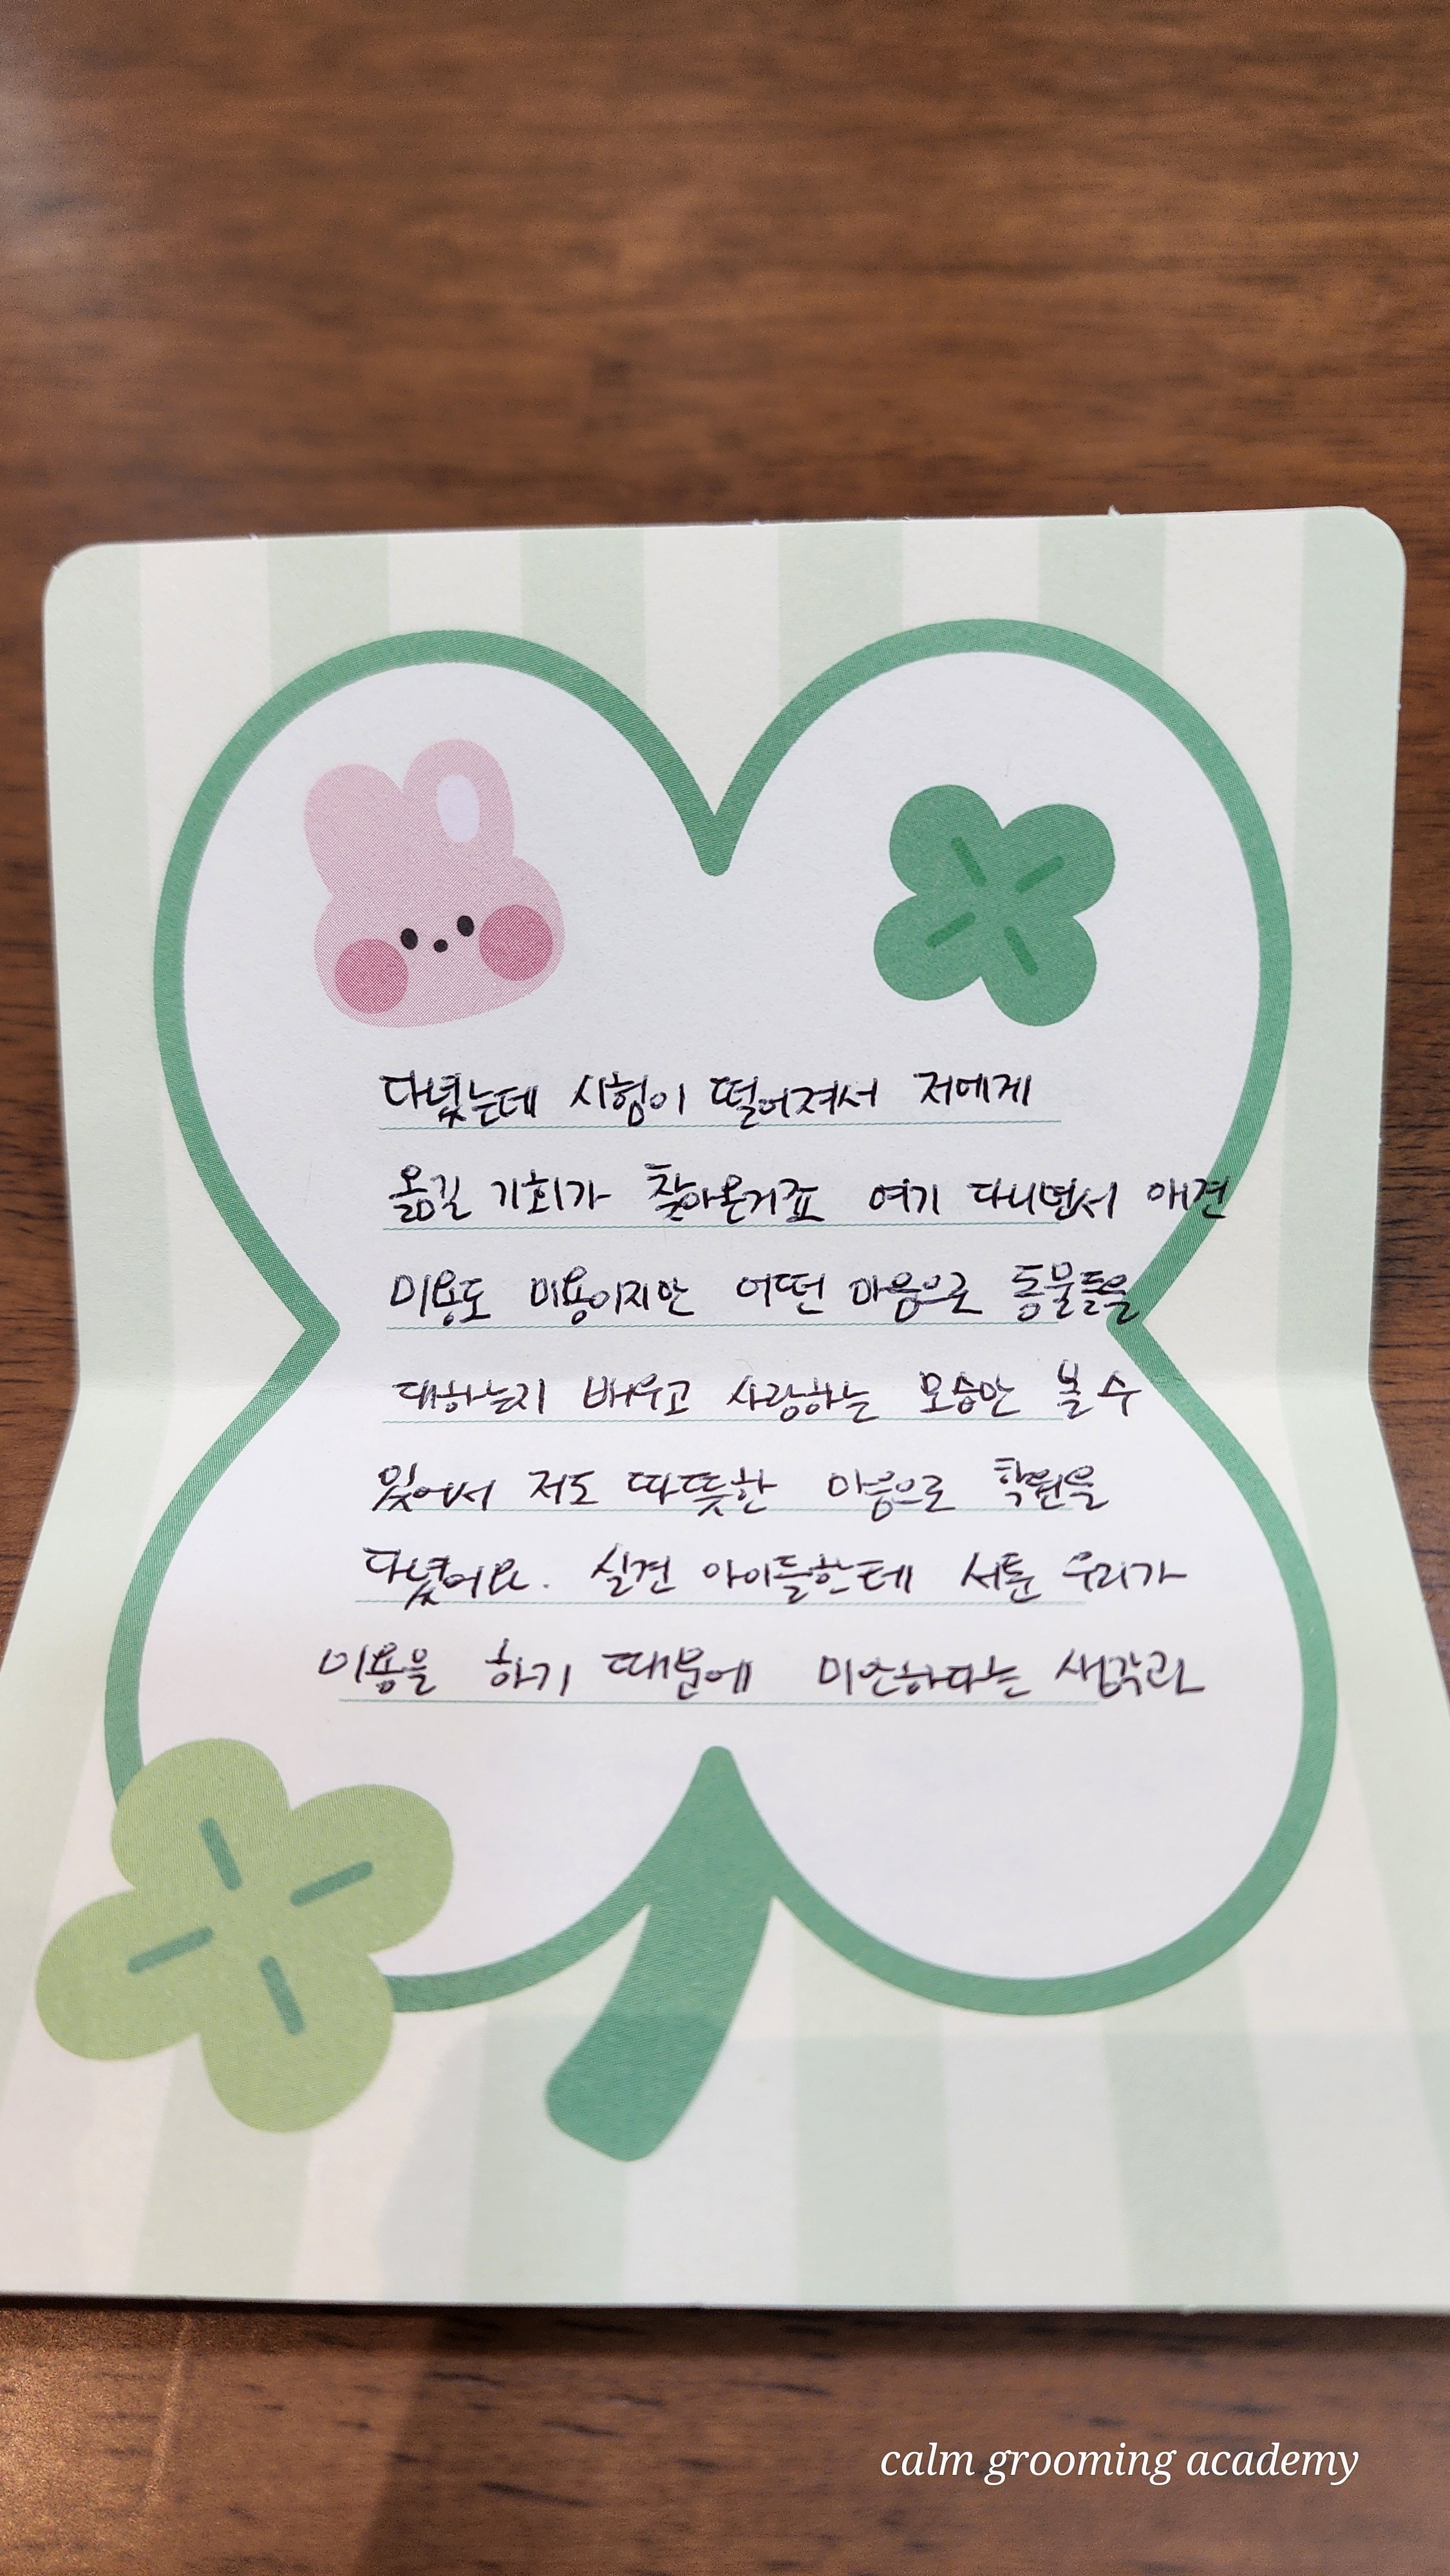 다녔는데 시험이 떨어져서 저에게
옮길 기회가 찾아온거죠 여기 다니면서 애견
미용도 미용이지만 어떤 마음으로 동물들을
대하는지 배우고 사랑하는 모습만 볼 수
있어서 저도 따뜻한 마음으로 학원을
다녔어요. 실견 아이들한테 서툰 우리가
미용을 하기 때문에 미안하다는 생각과
calm grooming academy